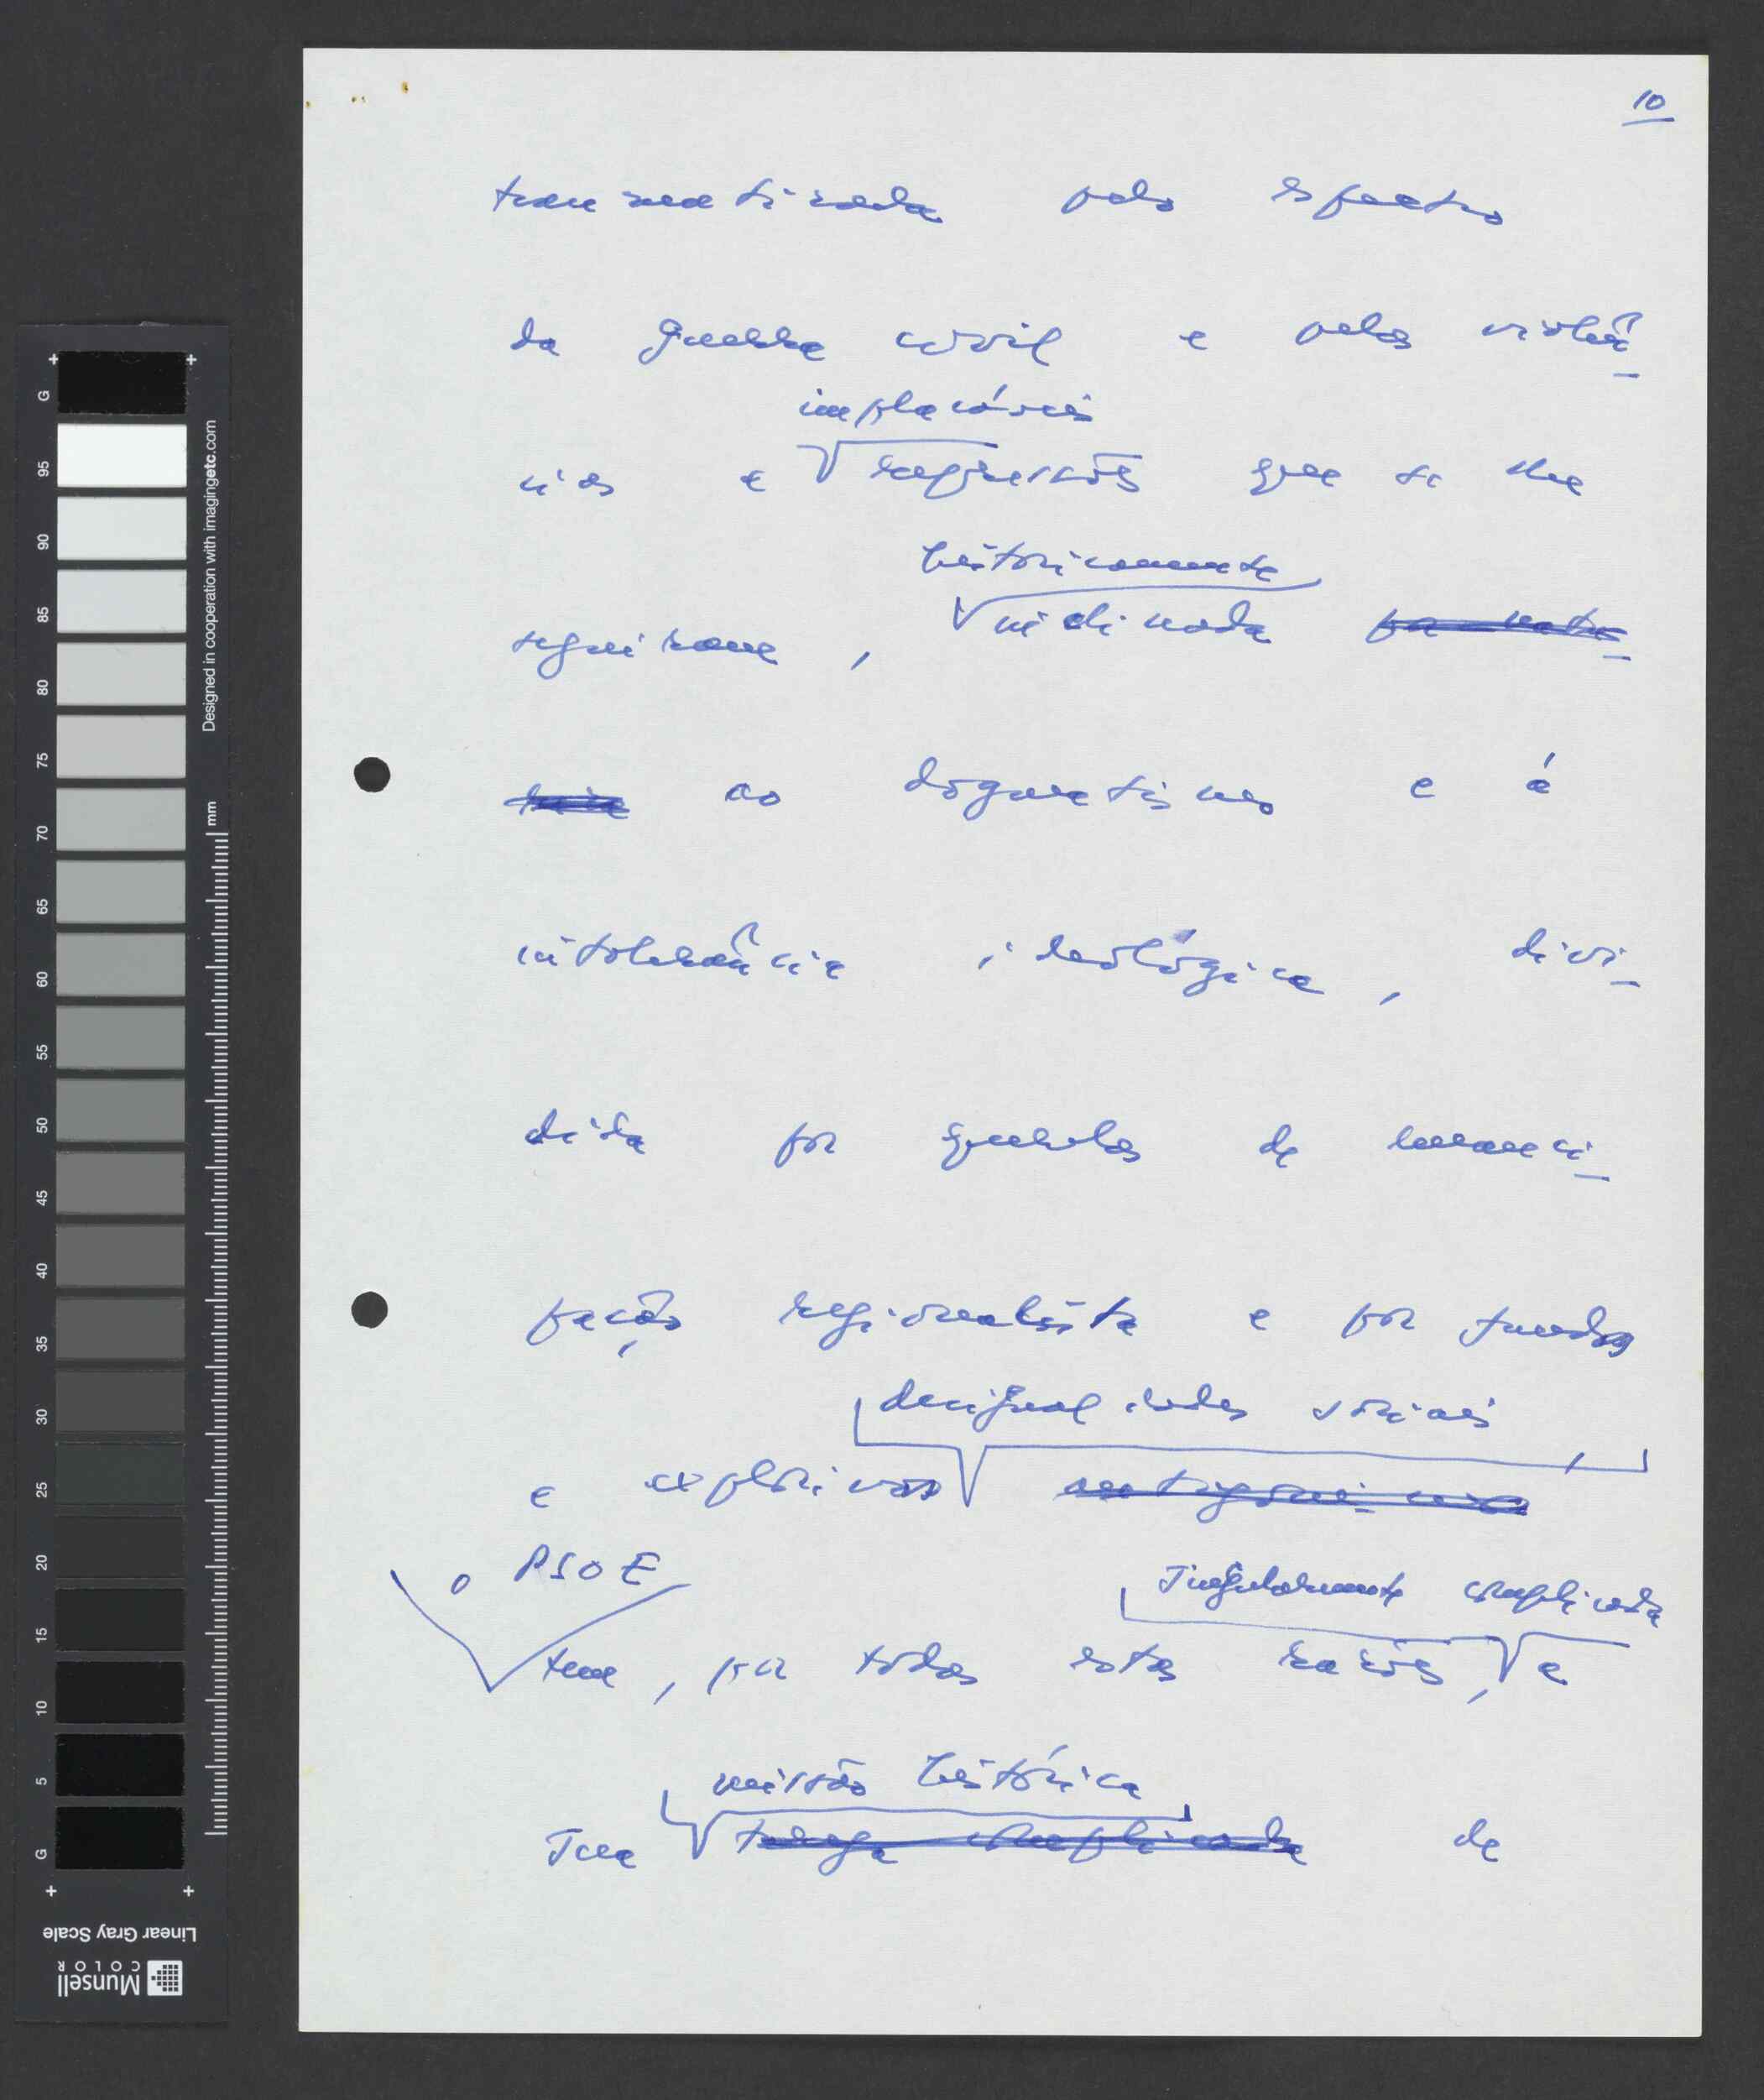 10
traumatizada pelo espectro
da guerra civil e pelas violên-
implacáveis
cias e repressões que se lhe
historicamente
seguiram, inclinada
ao dogmatismo e à
intolerância ideológica, divi-
dida por querelas de emanci-
pação regionalista e por fundas
desigualdades sociais
e explosivas
o PSOE
singularmente complicada
tem, por todas estas razões, a
missão histórica
sua tarefa complicada de
G
95
90
85
80
75
70
65
60
55
50
45
40
35
30
25
20
15
10
5
G
mm
Designed in cooperation with imagingetc.com
Linear Gray Scale
Munsell
COLOR